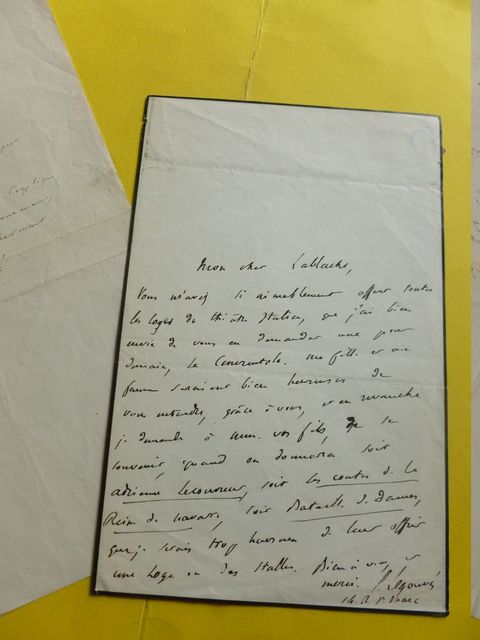 Mon cher Lablache,
Vous m'avez si aimablement offert toutes
les loges du théâtre Italien, que j'ai bien
envie de vous en demander une pour
demain, la Cenerentola. Ma fille et ma
femme seraient bien heureuses de
vous entendre, grâce à vous, et en revanche
je demande à mrs. vos fils, de se
souvenir, quand on donnera soit
adrienne Lecouvreur, soit les contes de la
Reine de navarre, soit Bataille de Dames,
que je serais trop heureux de leur offrir
une loge ou des stalles. Bien à vous, et
merci. E. Legouvé
14 R. St Marc